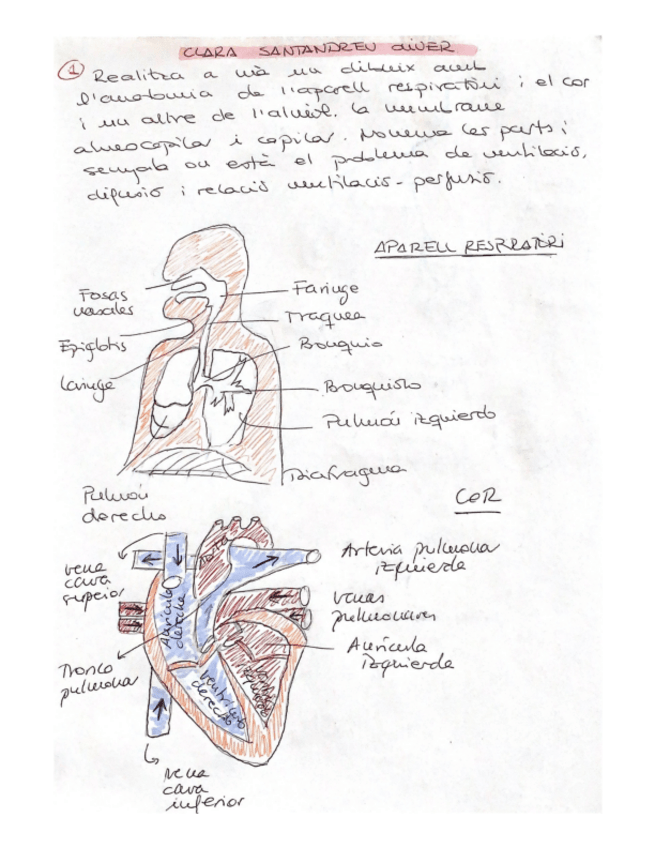 CLARA SANTANDREU OLIVER
1 Realitza a mà un dibuix amb
l'anatomia de l'aparell respiratòri i el cor
i un altre de l'alvèol. la membrane
alveocapilar i capilar. Nomena les parts i
senyala on està el problema de ventilació,
difusió i relació ventilació-perfusió.
APARELL RESPIRATÒRI
Fosas
nasales
Epiglotis
Laringe
Faringe
Traquea
Bronquio
Bronquiolo
Pulmón izquierdo
Diafragma
Pulmón
derecho
COR
vena
cava
superior
Tronco
pulmonar
Aorta
Aurícula
derecha
ventrículo
derecho
Arteria pulmonar
izquierda
venas
pulmonares
Aurícula
izquierda
vena
cava
inferior